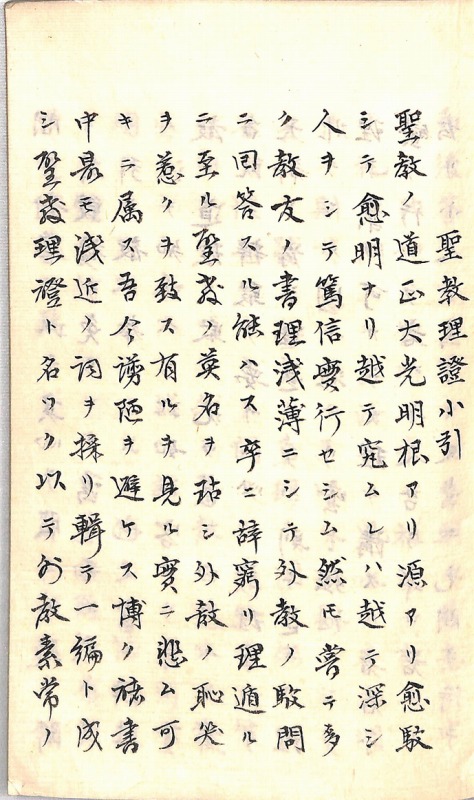 聖教理證小引
聖教ノ道正大光明根アリ源アリ愈駁
シテ愈明ナリ越テ究ムレハ越テ深シ
人ヲシテ篤信實行セシム然モ嘗テ多
ク教友ノ書理浅薄ニシテ外教ノ駁問
ニ回答スル能ハス卒ニ辞窮リ理遁ル
ニ至ル聖教ノ英名ヲ玷シ外教ノ恥笑
ヲ惹クヲ致ス有ルヲ見ル實ニ悲ム可
キニ属ス吾今謭陋ヲ避ケス博ク諸書
中最モ浅近ノ詞ヲ採リ輯テ一編ト成
シ聖教理證ト名ツク以テ外教素常ノ